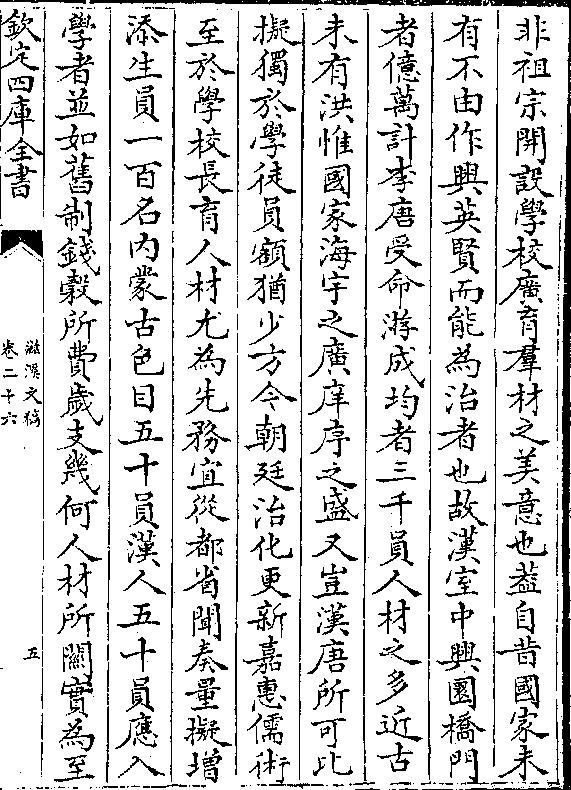 非祖宗開設學校廣育羣材之美意也葢自昔國家未
有不由作興英賢而能為治者也故漢室中興圜橋門
者億萬計李唐受命游成均者三千員人材之多近古
未有洪惟國家海宇之廣庠序之盛又豈漢唐所可比
擬獨於學徒員額猶少方今朝廷治化更新嘉惠儒術
至於學校長育人材尤為先務宜從都省聞奏量擬增
添生員一百名内蒙古色目五十員漢人五十員應入
學者並如舊制錢穀所費歲支幾何人材所關實為至
欽定四庫全書
滋溪文稿
卷二十六
五